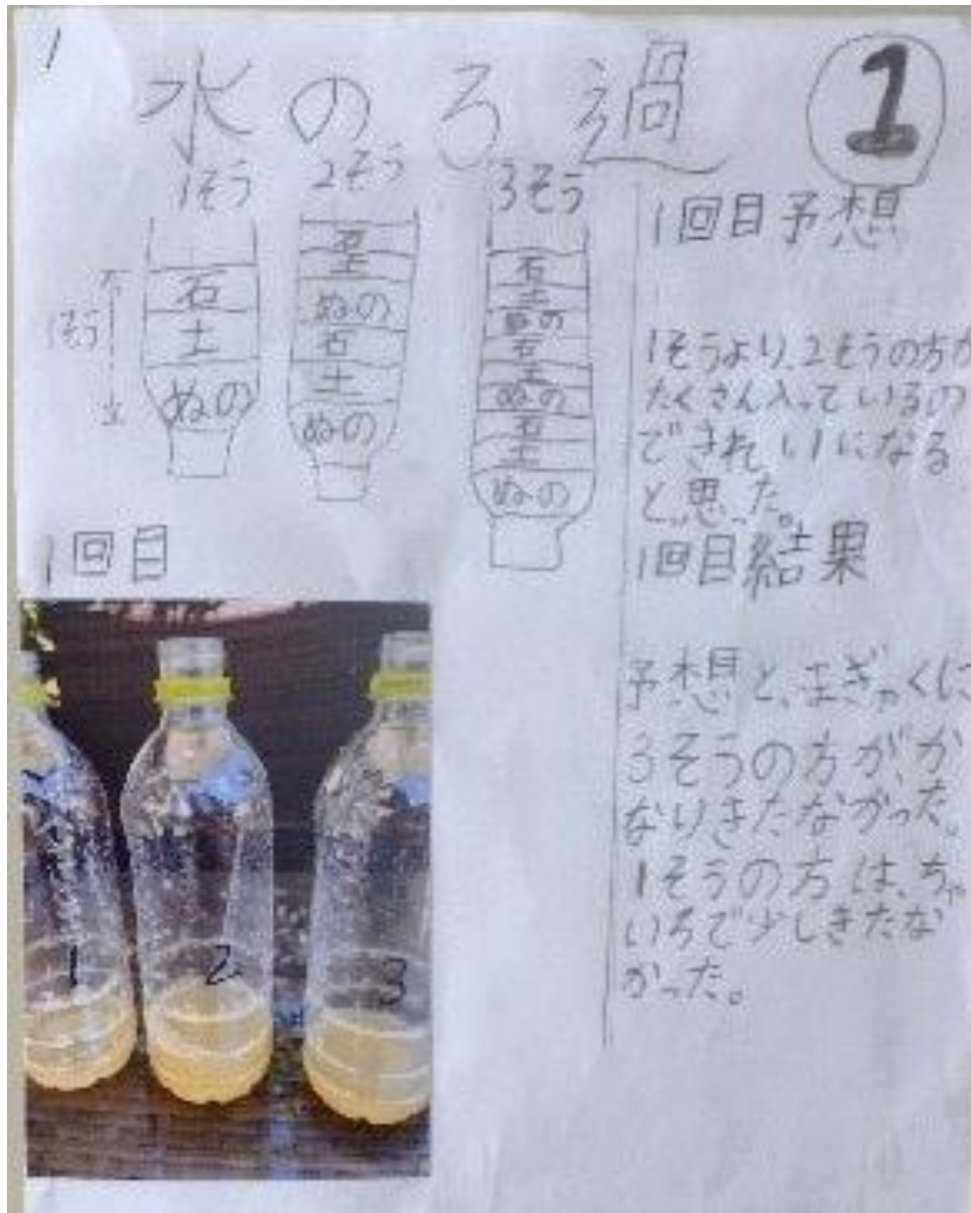 1
水のろ過
1
1そう
2そう
3そう
1そう
石
土
ぬの
石
土
ぬの
石
土
ぬの
石
土
ぬの
石
土
ぬの
石
土
ぬの
1回目予想
1そうより、2そうの方が
たくさん入っているの
できれいになる
と、思った。
1回目結果
予想と、まぎゃくに
3そうの方が、か
なりきたなかった。
1そうの方は、ちゃ
いろで少しきたな
かった。
1回目
1
2
3